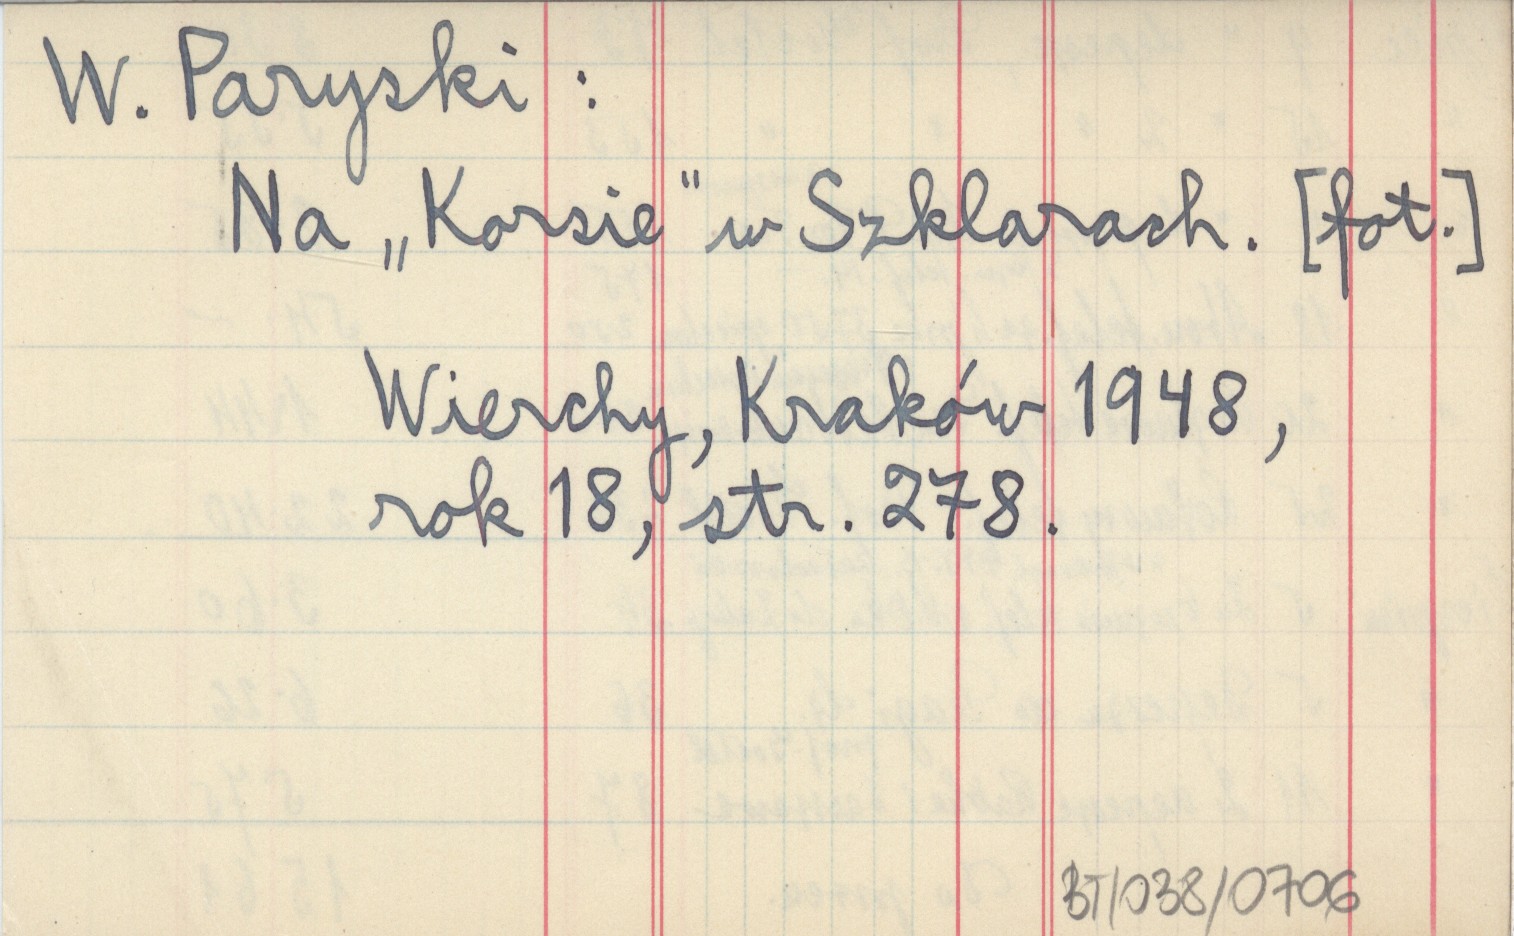 W. Paryski :
Na „Korsie" w Szklarach. [fot.]
Wierchy, Kraków 1948,
rok 18, str. 278.
BT/038/0706